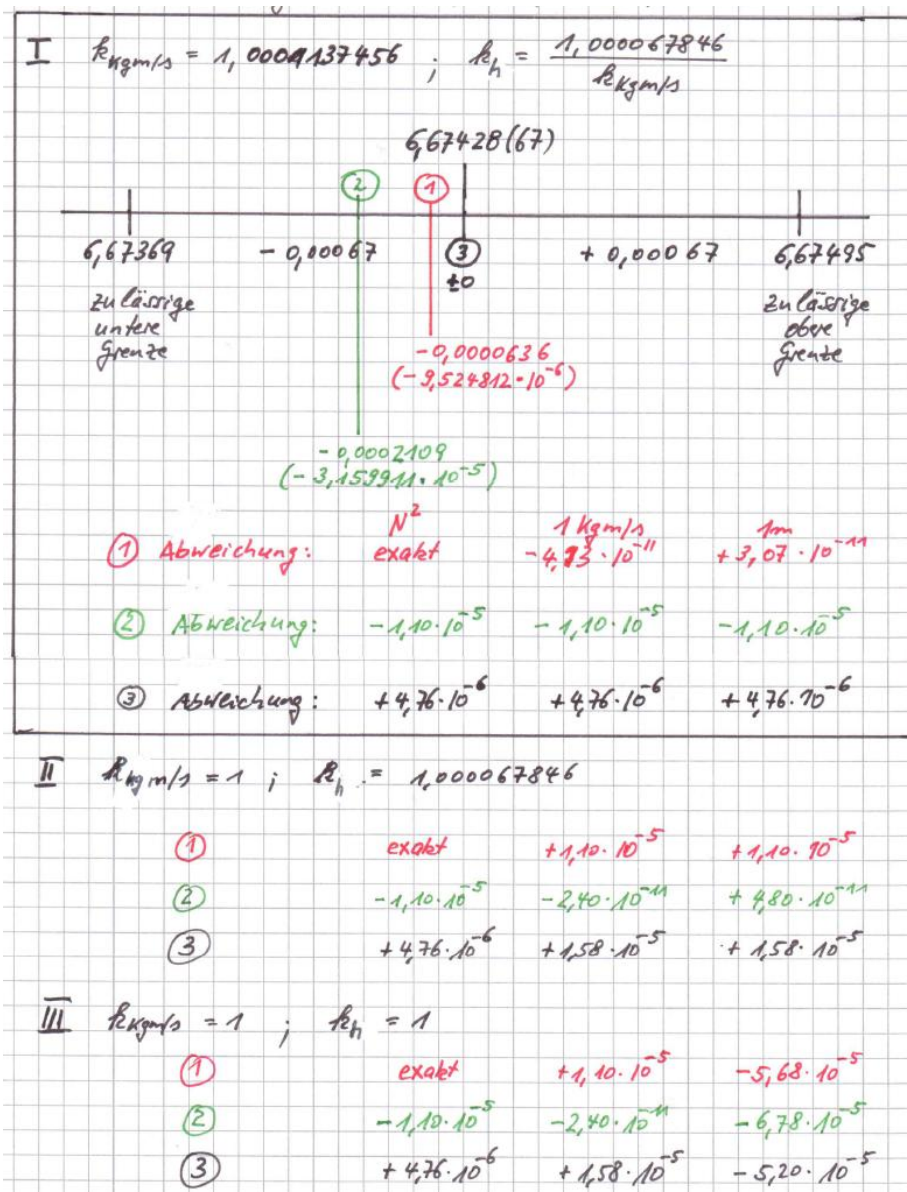 I k_Kgm/s = 1,00001137456 ; k_h = 1,000067846 / k_Kgm/s
6,67428(67)
② ①
6,67369 - 0,00067 ③ + 0,00067 6,67495
±0
zulässige zulässige
untere obere
Grenze Grenze
-0,0000636
(-9,524812·10^-6)
-0,0002109
(-3,159911·10^-5)
N² 1 Kgm/s 1m
① Abweichung: exakt -4,13·10^-11 +3,07·10^-11
② Abweichung: -1,10·10^-5 -1,10·10^-5 -1,10·10^-5
③ Abweichung: +4,76·10^-6 +4,76·10^-6 +4,76·10^-6
II k_kgm/s = 1 ; k_h = 1,000067846
① exakt +1,10·10^-5 +1,10·10^-5
② -1,10·10^-5 -2,40·10^-11 +4,80·10^-11
③ +4,76·10^-6 +1,58·10^-5 +1,58·10^-5
III k_Kgm/s = 1 ; k_h = 1
① exakt +1,10·10^-5 -5,68·10^-5
② -1,10·10^-5 -2,40·10^-11 -6,78·10^-5
③ +4,76·10^-6 +1,58·10^-5 -5,20·10^-5